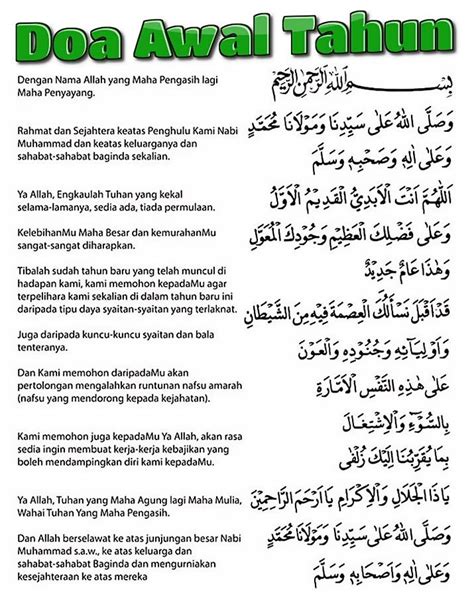 Doa Awal Tahun
Dengan Nama Allah yang Maha Pengasih lagi
Maha Penyayang.
بِسْمِ اللهِ الرَّحْمٰنِ الرَّحِيْمِ
Rahmat dan Sejahtera keatas Penghulu Kami Nabi
Muhammad dan keatas keluarganya dan
sahabat-sahabat baginda sekalian.
وَصَلَّى اللهُ عَلٰى سَيِّدِنَا وَمَوْلَانَا مُحَمَّدٍ
وَعَلٰى اٰلِهِ وَصَحْبِهِ وَسَلَّمَ
Ya Allah, Engkaulah Tuhan yang kekal
selama-lamanya, sedia ada, tiada permulaan.
اَللّٰهُمَّ اَنْتَ الْاَبَدِيُّ الْقَدِيْمُ الْاَوَّلُ
KelebihanMu Maha Besar dan kemurahanMu
sangat-sangat diharapkan.
وَعَلٰى فَضْلِكَ الْعَظِيْمِ وَجُوْدِكَ الْمُعَوَّلُ
Tibalah sudah tahun baru yang telah muncul di
hadapan kami, kami memohon kepadaMu agar
terpelihara kami sekalian di dalam tahun baru ini
daripada tipu daya syaitan-syaitan yang terlaknat.
وَهٰذَا عَامٌ جَدِيْدٌ
قَدْ اَقْبَلَ نَسْأَلُكَ الْعِصْمَةَ فِيْهِ مِنَ الشَّيْطَانِ
Juga daripada kuncu-kuncu syaitan dan bala
tenteranya.
وَاَوْلِيَائِهِ وَجُنُوْدِهِ وَالْعَوْنَ
Dan Kami memohon daripadaMu akan
pertolongan mengalahkan runtunan nafsu amarah
(nafsu yang mendorong kepada kejahatan).
عَلٰى هٰذِهِ النَّفْسِ الْاَمَّارَةِ
بِالسُّوْءِ وَالْاِشْتِغَالَ
Kami memohon juga kepadaMu Ya Allah, akan rasa
sedia ingin membuat kerja-kerja kebajikan yang
boleh mendampingkan diri kami kepadaMu.
بِمَا يُقَرِّبُنَا اِلَيْكَ زُلْفٰى
Ya Allah, Tuhan yang Maha Agung lagi Maha Mulia,
Wahai Tuhan Yang Maha Pengasih.
يَا ذَا الْجَلَالِ وَالْاِكْرَامِ يَا اَرْحَمَ الرَّاحِمِيْنَ
Dan Allah berselawat ke atas junjungan besar Nabi
Muhammad s.a.w., ke atas keluarga dan
sahabat-sahabat Baginda dan mengurniakan
kesejahteraan ke atas mereka
وَصَلَّى اللهُ عَلٰى سَيِّدِنَا وَمَوْلَانَا مُحَمَّدٍ
وَعَلٰى اٰلِهِ وَاَصْحَابِهِ وَسَلَّمَ